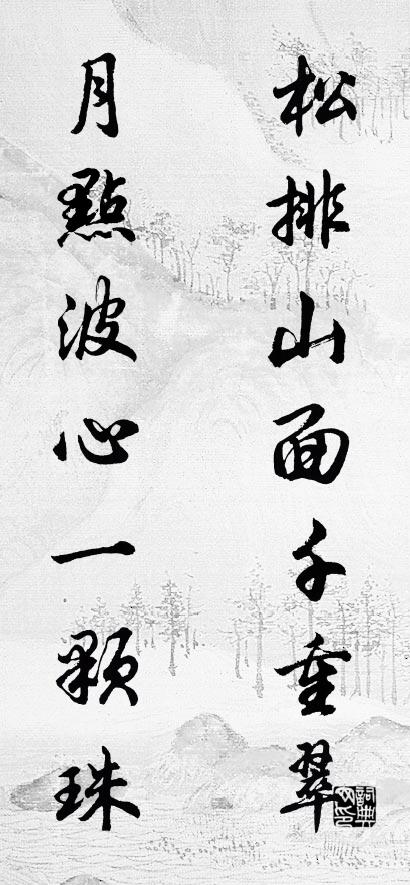 松排山面千重翠
月點波心一顆珠